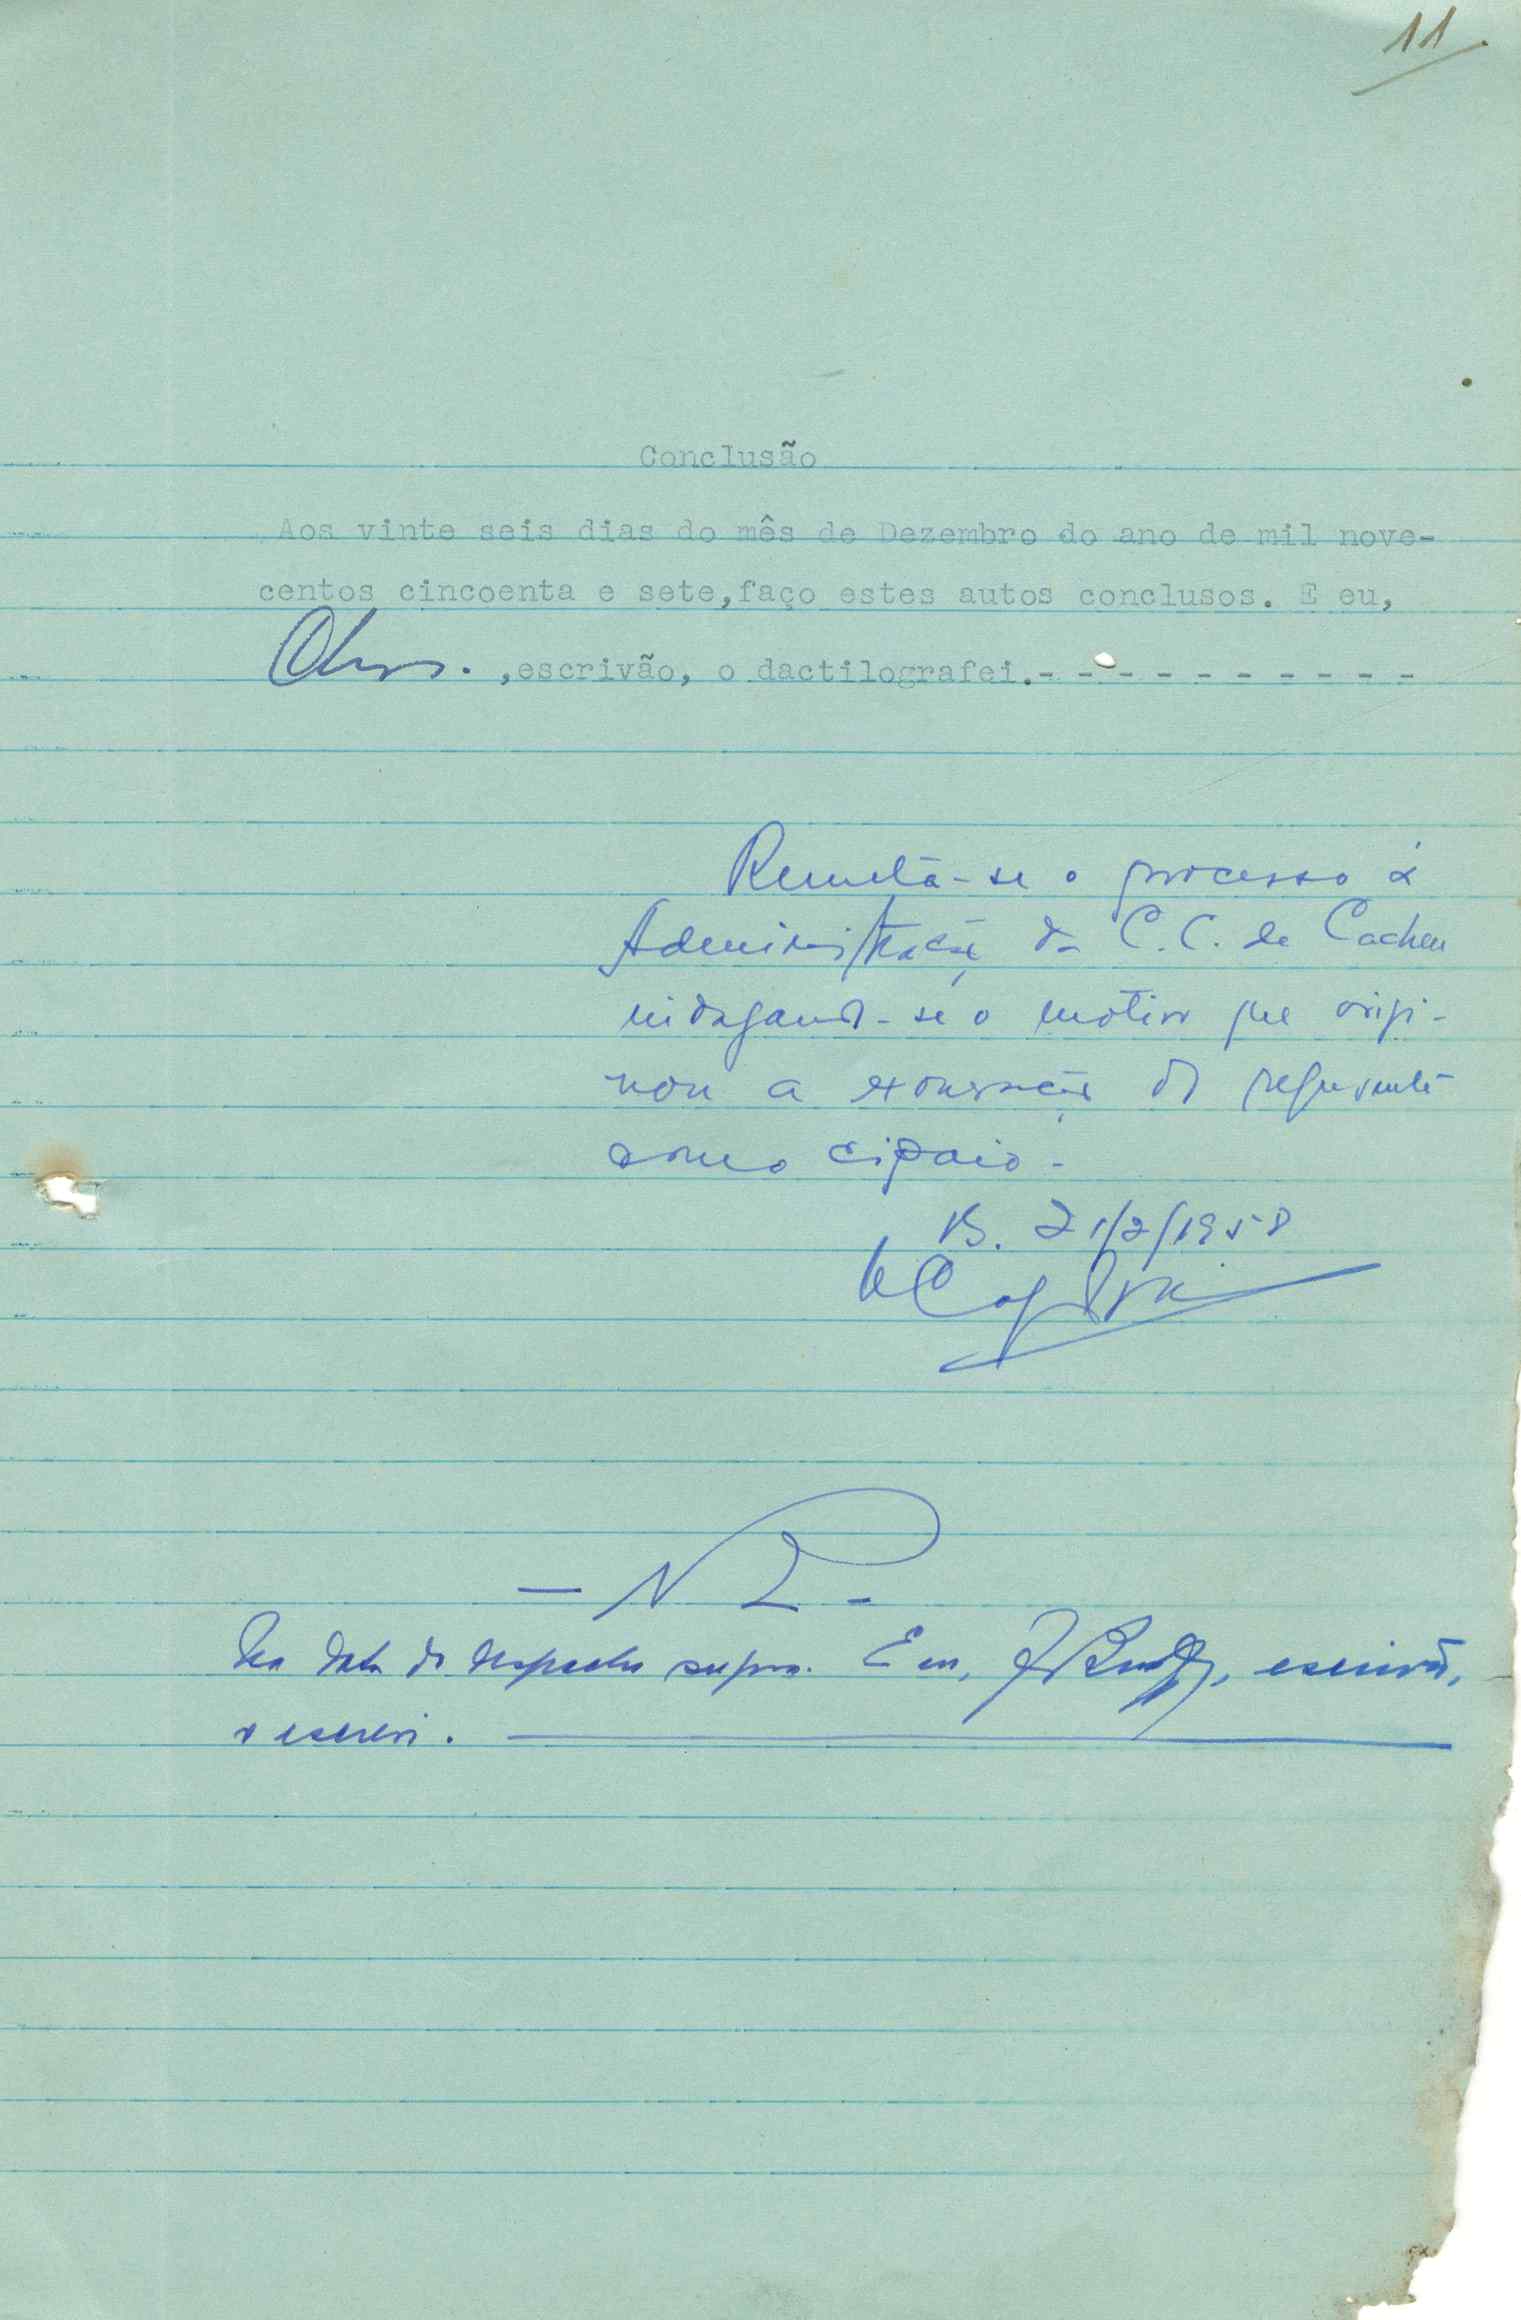 11
Conclusão
Aos vinte seis dias do mês de Dezembro do ano de mil nove-
centos cincoenta e sete,faço estes autos conclusos. E eu,
,escrivão, o dactilografei.- - - - - - - - - -
Remeta-se o processo à
Administração da C.C. de Cacheu
indagando-se o motivo que origi-
nou a exoneração do requerente
como cipaio.
B. 21/2/1958
Na data do despacho supra. E eu, , escrivão,
o escrevi.